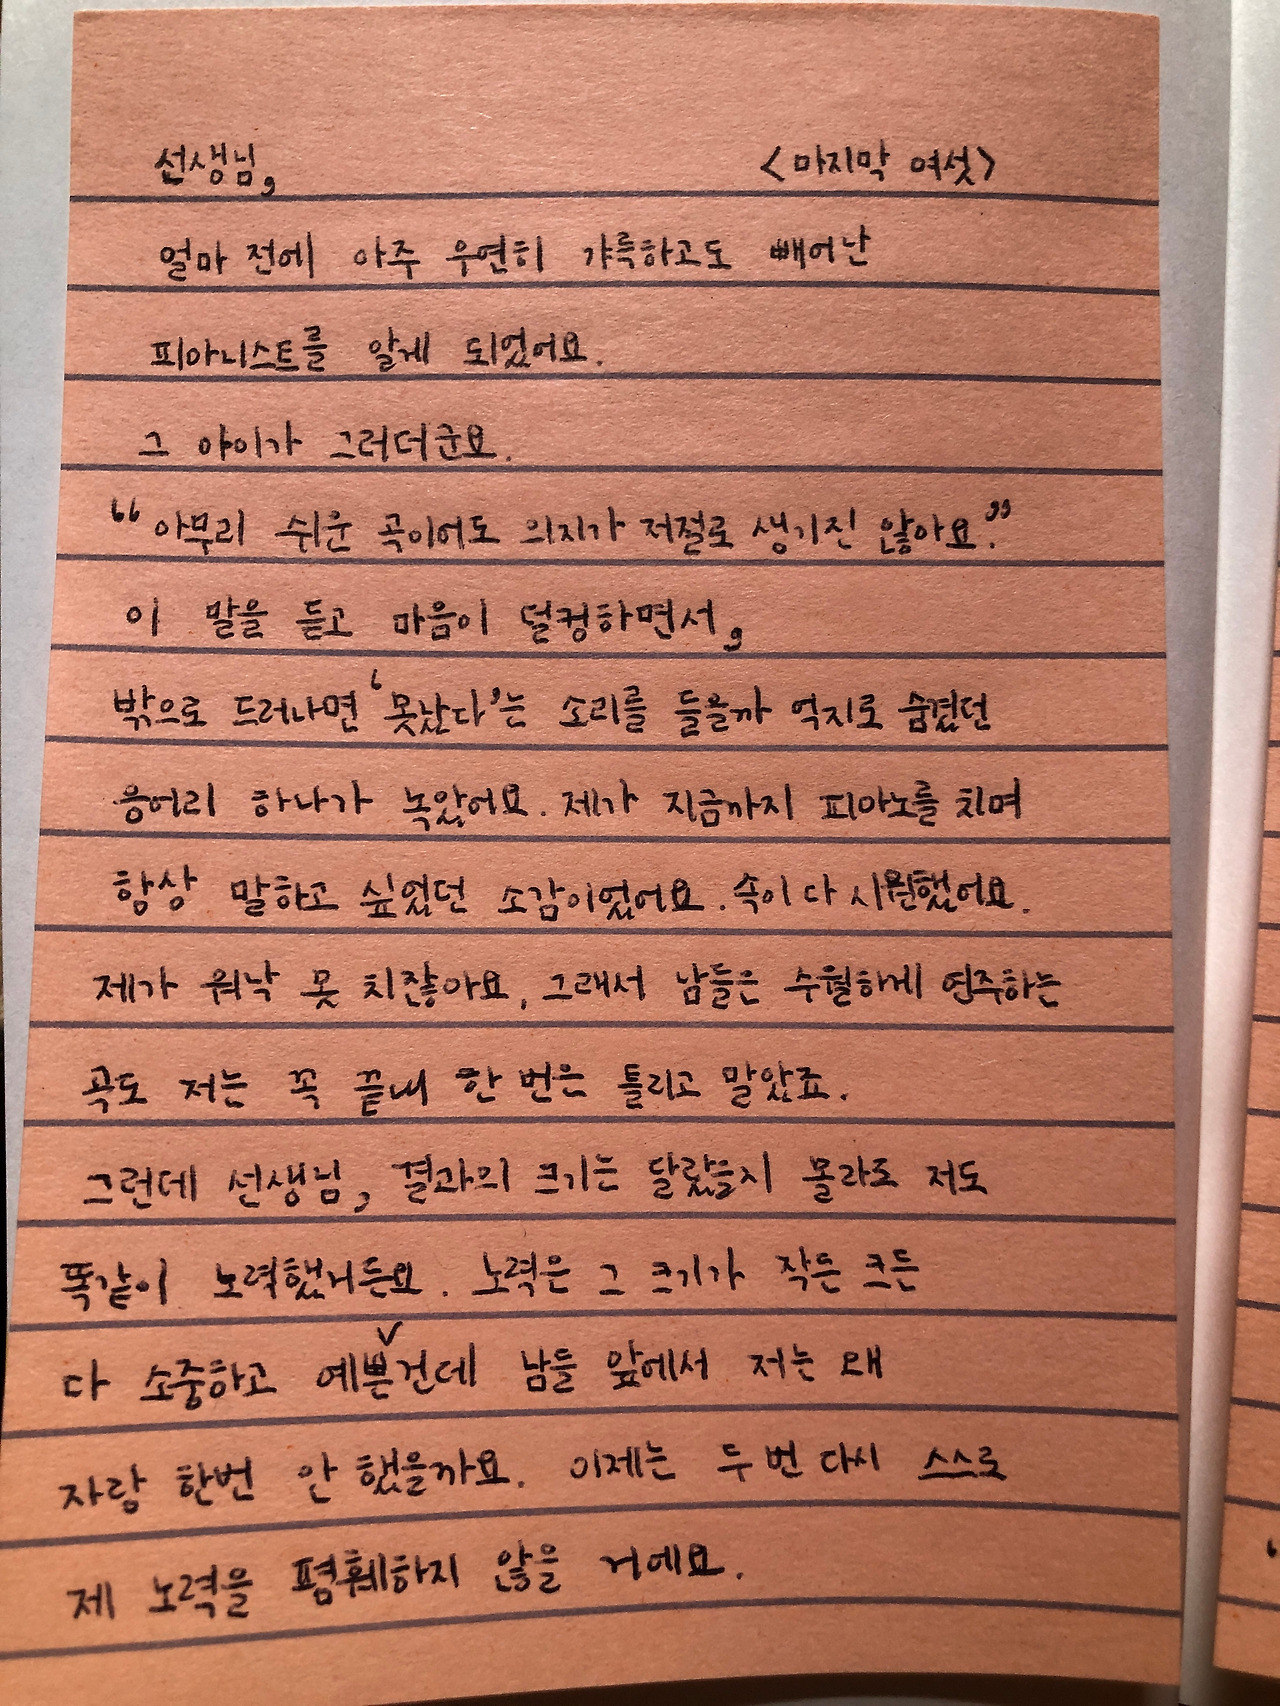 선생님, <마지막 여섯>
얼마 전에 아주 우연히 갸륵하고도 빼어난
피아니스트를 알게 되었어요.
그 아이가 그러더군요.
“아무리 쉬운 곡이어도 의지가 저절로 생기진 않아요.”
이 말을 듣고 마음이 덜컹하면서,
밖으로 드러나면 ‘못났다’는 소리를 들을까 억지로 숨겼던
응어리 하나가 녹았어요. 제가 지금까지 피아노를 치며
항상 말하고 싶었던 소감이었어요. 속이 다 시원했어요.
제가 워낙 못 치잖아요. 그래서 남들은 수월하게 연주하는
곡도 저는 꼭 끝내 한 번은 틀리고 말았죠.
그런데 선생님, 결과의 크기는 달랐을지 몰라도 저도
똑같이 노력했거든요. 노력은 그 크기가 작든 크든
다 소중하고 예쁜∨건데 남들 앞에서 저는 왜
자랑 한번 안 했을까요. 이제는 두 번 다시 스스로
제 노력을 폄훼하지 않을 거예요.